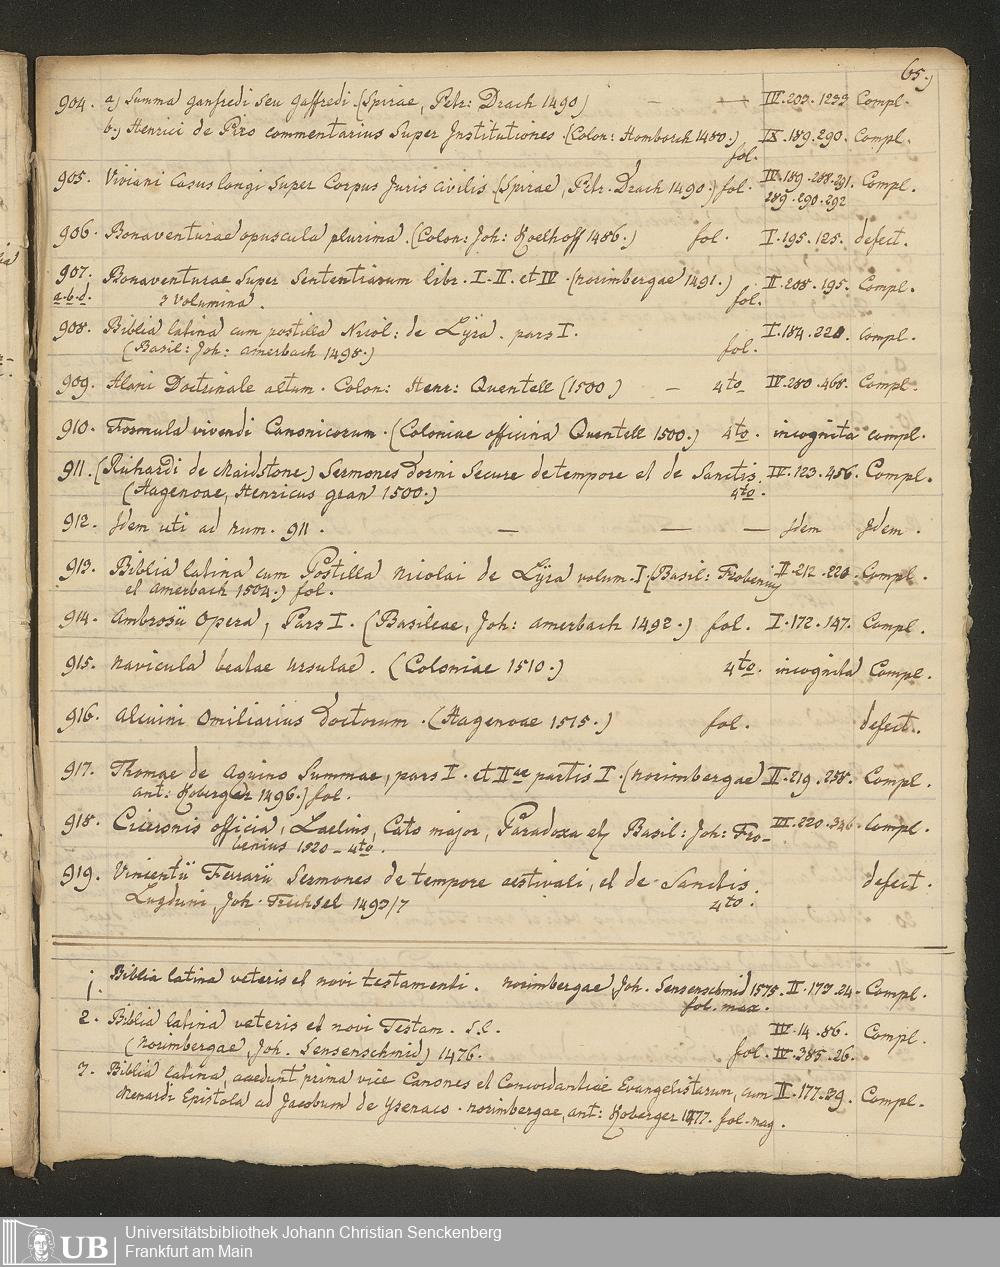 65.)
904. a) Summa Ganfredi seu Gaffredi (Spirae, Petr: Drach 1490) — — III. 203. 1233 Compl.
b.) Henrici de Piro commentarius super Institutiones. (Colon: Homborch 1480.) fol. IX. 189. 290. Compl.
905. Viviani Casus longi super Corpus Juris civilis (Spirae, Petr. Drach 1490.) fol. IV. 189. 288. 291. Compl.
289. 290. 292
906. Bonaventurae opuscula plurima. (Colon: Joh: Koelhoff 1486.) fol. I. 195. 125. defect.
907. Bonaventurae super Sententiarum libr. I. II. et IV. (Norimbergae 1491.) fol. II. 208. 195. Compl.
a. b. d. 3 Volumina.
908. Biblia latina cum postilla Nicol: de Lÿra. pars I. I. 184. 220. Compl.
(Basil: Joh: Amerbach 1498.) fol.
909. Alani Doctrinale altum. Colon: Henr: Quentell (1500) — 4to IV. 280. 468. Compl.
910. Formula vivendi Canonicorum. (Coloniae officina Quentell 1500.) 4to. incognita compl.
911. (Richardi de Maidstone) Sermones Dormi Secure de tempore et de Sanctis. IV. 123. 456. Compl.
(Hagenoae, Henricus Gran 1500.) 4to.
912. Idem uti ad num. 911. — — — Idem Idem.
913. Biblia latina cum Postilla Nicolai de Lÿra volum. I. (Basil: Frobenius II. 212. 220. Compl.
et Amerbach 1504.) fol.
914. Ambrosii Opera, Pars I. (Basileae, Joh: Amerbach 1492.) fol. I. 172. 147. Compl.
915. Navicula beatae Ursulae. (Coloniae 1510.) 4to. incognita Compl.
916. Alcuini Omiliarius Doctorum. (Hagenoae 1515.) fol. defect.
917. Thomae de Aquino Summae, pars I. et IIae partis I. (Norimbergae II. 219. 258. Compl.
ant: Koberger 1496.) fol.
918. Ciceronis officia, Laelius, Cato major, Paradoxa etc Basil: Joh: Fro- III. 220. 346. Compl.
benius 1520 – 4to.
919. Vincentii Ferrarii Sermones de tempore aestivali, et de Sanctis. defect.
Lugduni, Joh. Trechsel 1493/7 4to.
1. Biblia latina veteris et novi testamenti. Norimbergae, Joh. Sensenschmid 1575. II. 173. 24. Compl.
fol. max.
2. Biblia latina veteris et novi Testam. IV. 14. 86. Compl.
(Norimbergae, Joh. Sensenschmid) 1476. fol. IV. 385. 26.
3. Biblia latina, accedunt prima vice Canones et Concordantiae Evangelistarum, cum II. 177. 29. Compl.
Menardi Epistola ad Jacobum de Ysenaco. Norimbergae, ant: Koberger 1477. fol. mag.
Universitätsbibliothek Johann Christian Senckenberg
Frankfurt am Main
UB